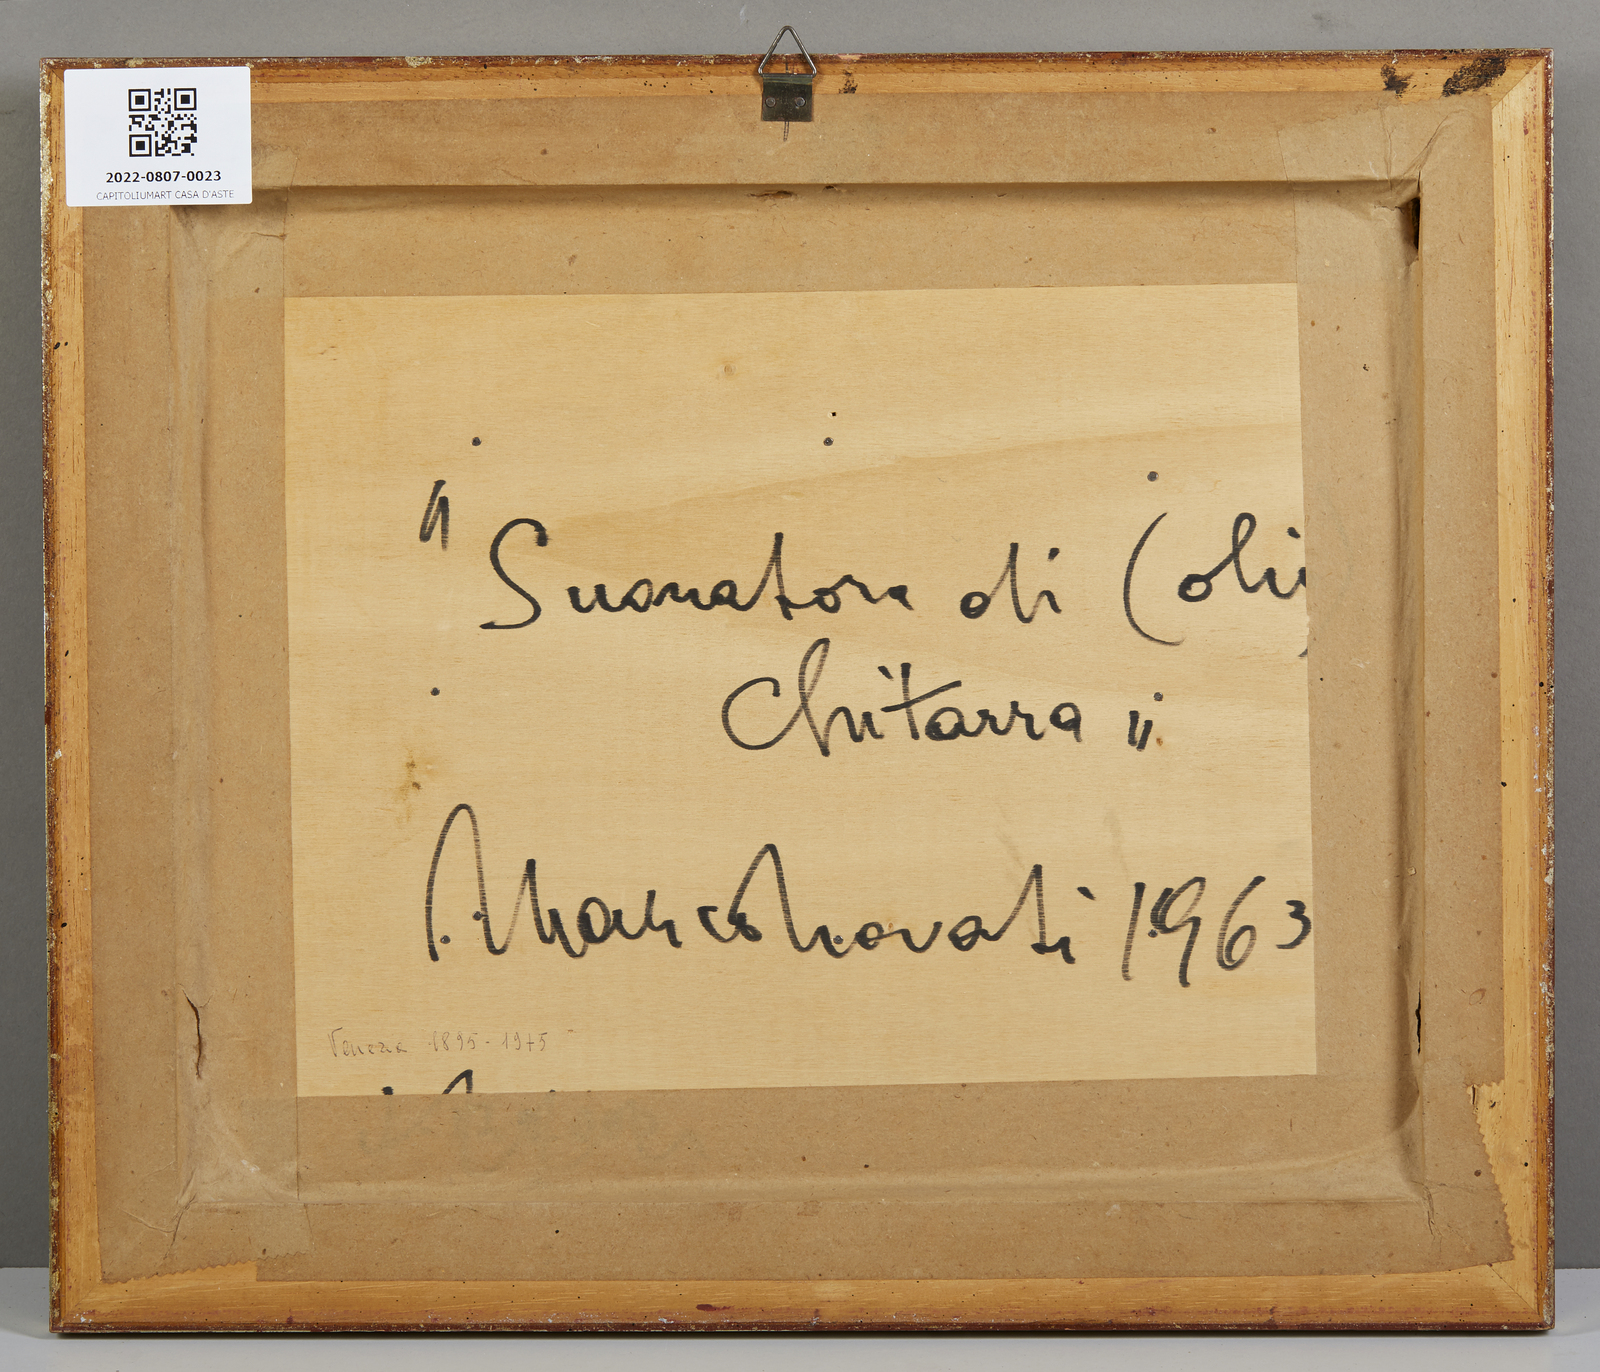 2022-0807-0023
CAPITOLIUMART CASA D'ASTE
"Suonatore di (oli
Chitarra"
Marco Novati 1963
Venezia 1895-1975